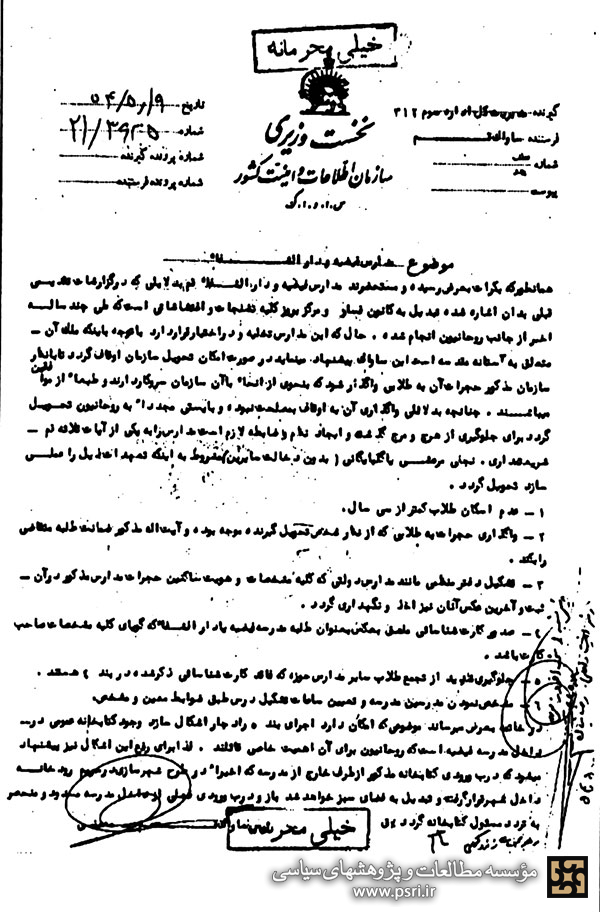 خیلی محرمانه
نخست وزیری
سازمان اطلاعات و امنیت کشور
س.ا.و.ا.ک
گیرنده مدیریت کل اداره سوم ۳۱۲
فرستنده ساواک قم
شماره
پیوست
تاریخ
شماره
شماره پرونده گیرنده
شماره پرونده فرستنده
موضوع مدارس فیضیه و دارالشفاء
همانطور که بکرات بعرض رسیده و مستحضرند مدارس فیضیه و دارالشفاء قم بدلایلی که در گزارشات تقدیمی
قبلی بدان اشاره شده تبدیل به کانون فساد و مرکز بروز کلیه تشنجات و اغتشاشاتی است که طی چند ساله
اخیر از جانب روحانیون انجام شده. حال که این مدارس تخلیه و در اختیار قرار دارد با توجه باینکه ملک آن
متعلق به آستانه مقدسه است این ساواک پیشنهاد مینماید در صورت امکان تحویل سازمان اوقاف گردد تا بانظر
سازمان مذکور حجرات آن به طلابی واگذار شود که بنحوی از انحاء با آن سازمان سروکار دارند و طبعاً از موافقین
میباشند. چنانچه بدلائلی واگذاری آن به اوقاف بمصلحت نبوده و بایستی مجدداً به روحانیون تحویل
گردد برای جلوگیری از هرج و مرج گذشته و ایجاد نظم و ضابطه لازم است مدارس را به یکی از آیات ثلاثه قم
شریعتمداری. نجفی مرعشی یا گلپایگانی (بدون دخالت سایرین) مشروط به اینکه تعهدات ذیل را عملی
سازد تحویل گردد.
۱ – عدم اسکان طلاب کمتر از سی سال.
۲ – واگذاری حجرات به طلابی که از نظر شخص تحویل گیرنده موجه بوده و آیت اله مذکور ضمانت طلبه متقاضی
را بکند.
۳ – تشکیل دفتر منظمی مانند مدارس دولتی که کلیه مشخصات و هویت ساکنین حجرات مدارس مذکور در آن
ثبت و آخرین عکس آنان نیز اخذ و نگهداری گردد.
۴ – صدور کارت شناسائی ملصق بعکس بعنوان طلبه مدرسه فیضیه یا دارالشفاء که گویای کلیه مشخصات صاحب
کارت باشد.
۵ – جلوگیری از تجمع طلاب سایر مدارس حوزه که فاقد کارت شناسائی ذکر شده در بند ۴ هستند.
۶ – مشخص نمودن مدرسین مدرسه و تعیین ساعات تشکیل درس طبق ضوابط معین و مشخص.
در خاتمه بعرض میرساند موضوعی که امکان دارد اجرای بند ۵ را دچار اشکال سازد وجود کتابخانه عمومی در
داخل مدرسه فیضیه است که روحانیون برای آن اهمیت خاصی قائلند. لذا برای رفع این اشکال نیز پیشنهاد
میشود که درب ورودی کتابخانه مذکور از طرف خارج از مدرسه که اخیراً در طرح شهرسازی و ترمیم رودخانه
داخل شهر قرار گرفته و تبدیل به فضای سبز خواهد شد باز و درب ورودی فعلی از داخل مدرسه مسدود و منحصر
به تردد مسئول کتابخانه گردد
خیلی محرمانه
مؤسسه مطالعات و پژوهشهای سیاسی
www.psri.ir